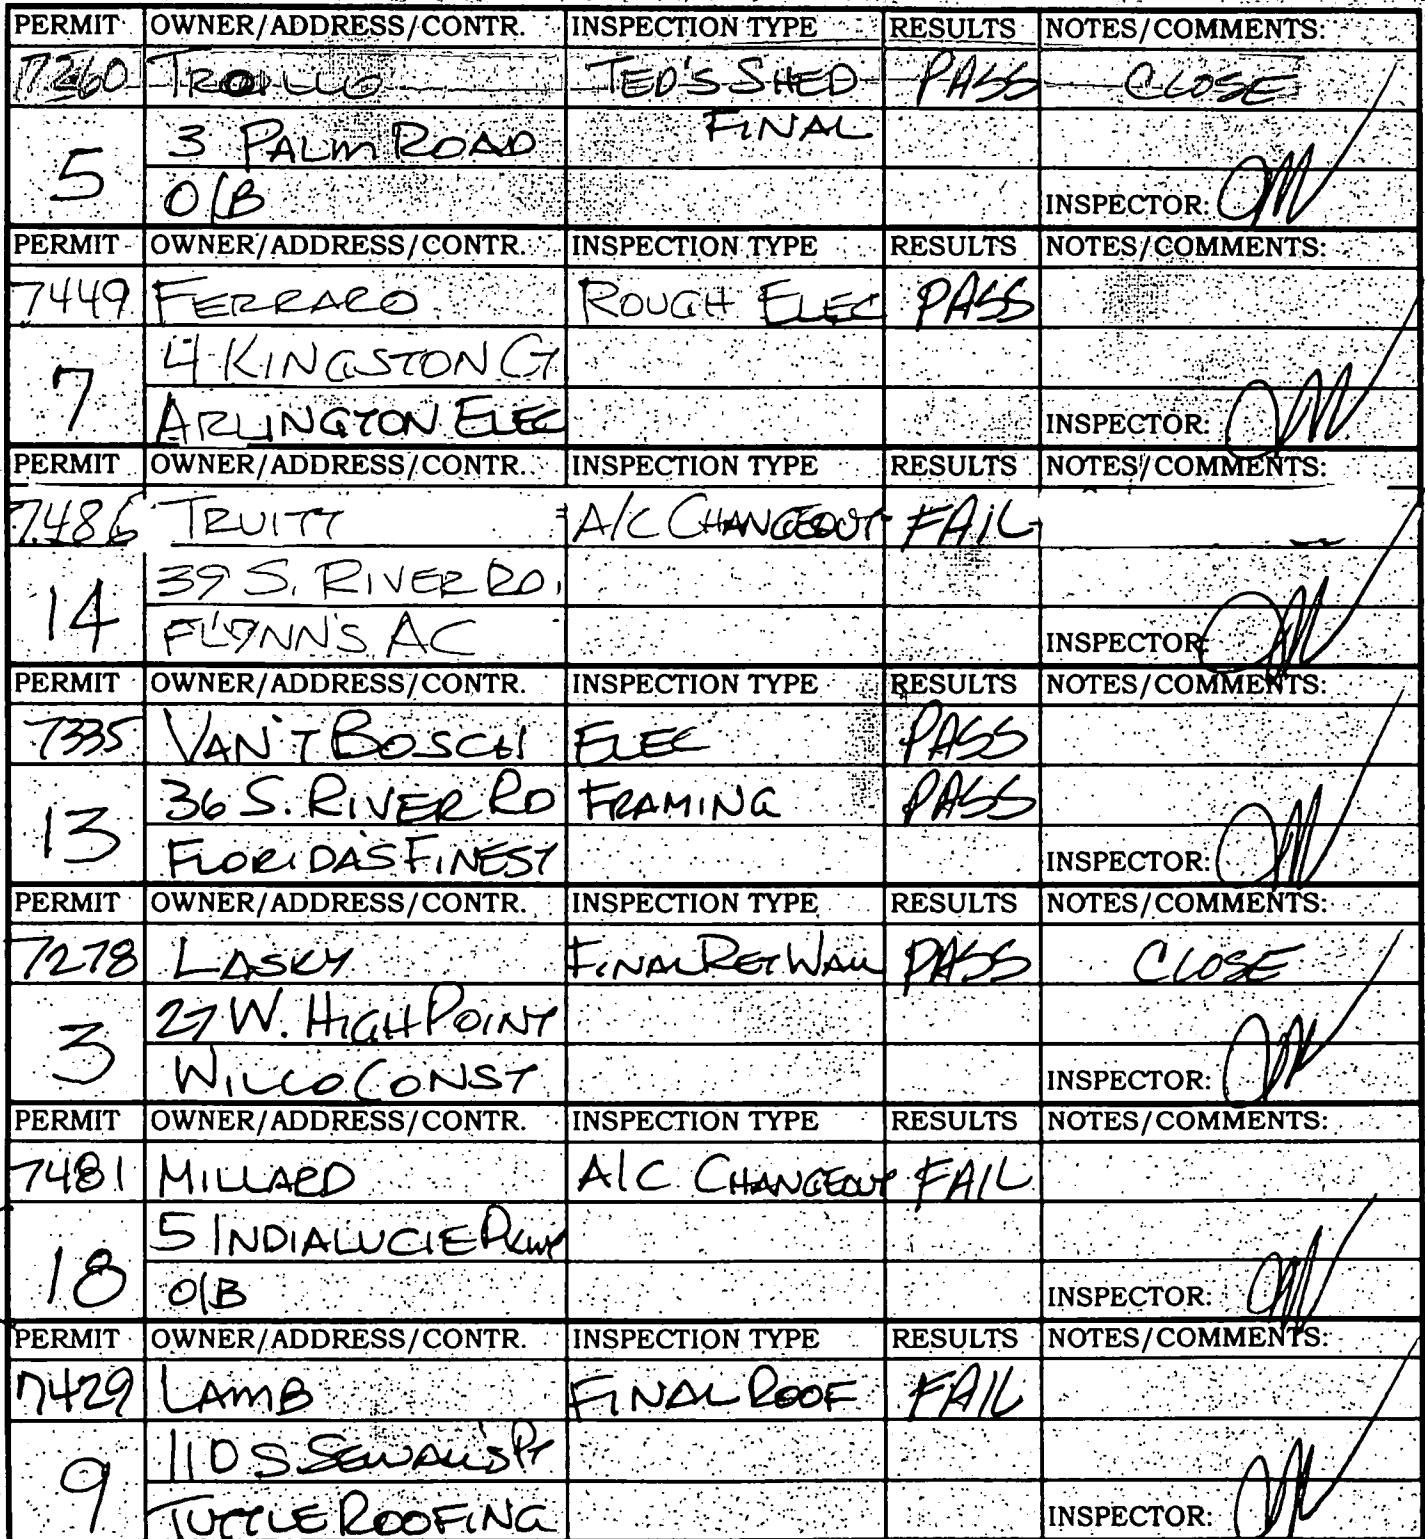 PERMIT OWNER/ADDRESS/CONTR. INSPECTION TYPE RESULTS NOTES/COMMENTS:
7260 TED'S SHED PASS CLOSE
3 PALM ROAD FINAL
5
O/B INSPECTOR:
PERMIT OWNER/ADDRESS/CONTR. INSPECTION TYPE RESULTS NOTES/COMMENTS:
7449 FERRARO ROUGH ELEC PASS
4 KINGSTON CT
7
ARLINGTON ELEC INSPECTOR:
PERMIT OWNER/ADDRESS/CONTR. INSPECTION TYPE RESULTS NOTES/COMMENTS:
7486 TRUITT A/C CHANGEOUT FAIL
39 S. RIVER RD.
14
FLYNN'S AC INSPECTOR:
PERMIT OWNER/ADDRESS/CONTR. INSPECTION TYPE RESULTS NOTES/COMMENTS:
7335 VAN'T BOSCH ELEC PASS
36 S. RIVER RD FRAMING PASS
13
FLORIDA'S FINEST INSPECTOR:
PERMIT OWNER/ADDRESS/CONTR. INSPECTION TYPE RESULTS NOTES/COMMENTS:
7278 LASKY FINAL RET WALL PASS CLOSE
27 W. HIGH POINT
3
WILLCO CONST INSPECTOR:
PERMIT OWNER/ADDRESS/CONTR. INSPECTION TYPE RESULTS NOTES/COMMENTS:
7481 MILLARD A/C CHANGEOUT FAIL
5 INDIALUCIE PKWY
18
O/B INSPECTOR:
PERMIT OWNER/ADDRESS/CONTR. INSPECTION TYPE RESULTS NOTES/COMMENTS:
7429 LAMB FINAL ROOF FAIL
110 S SEWALL'S PT
9
TUTTLE ROOFING INSPECTOR: